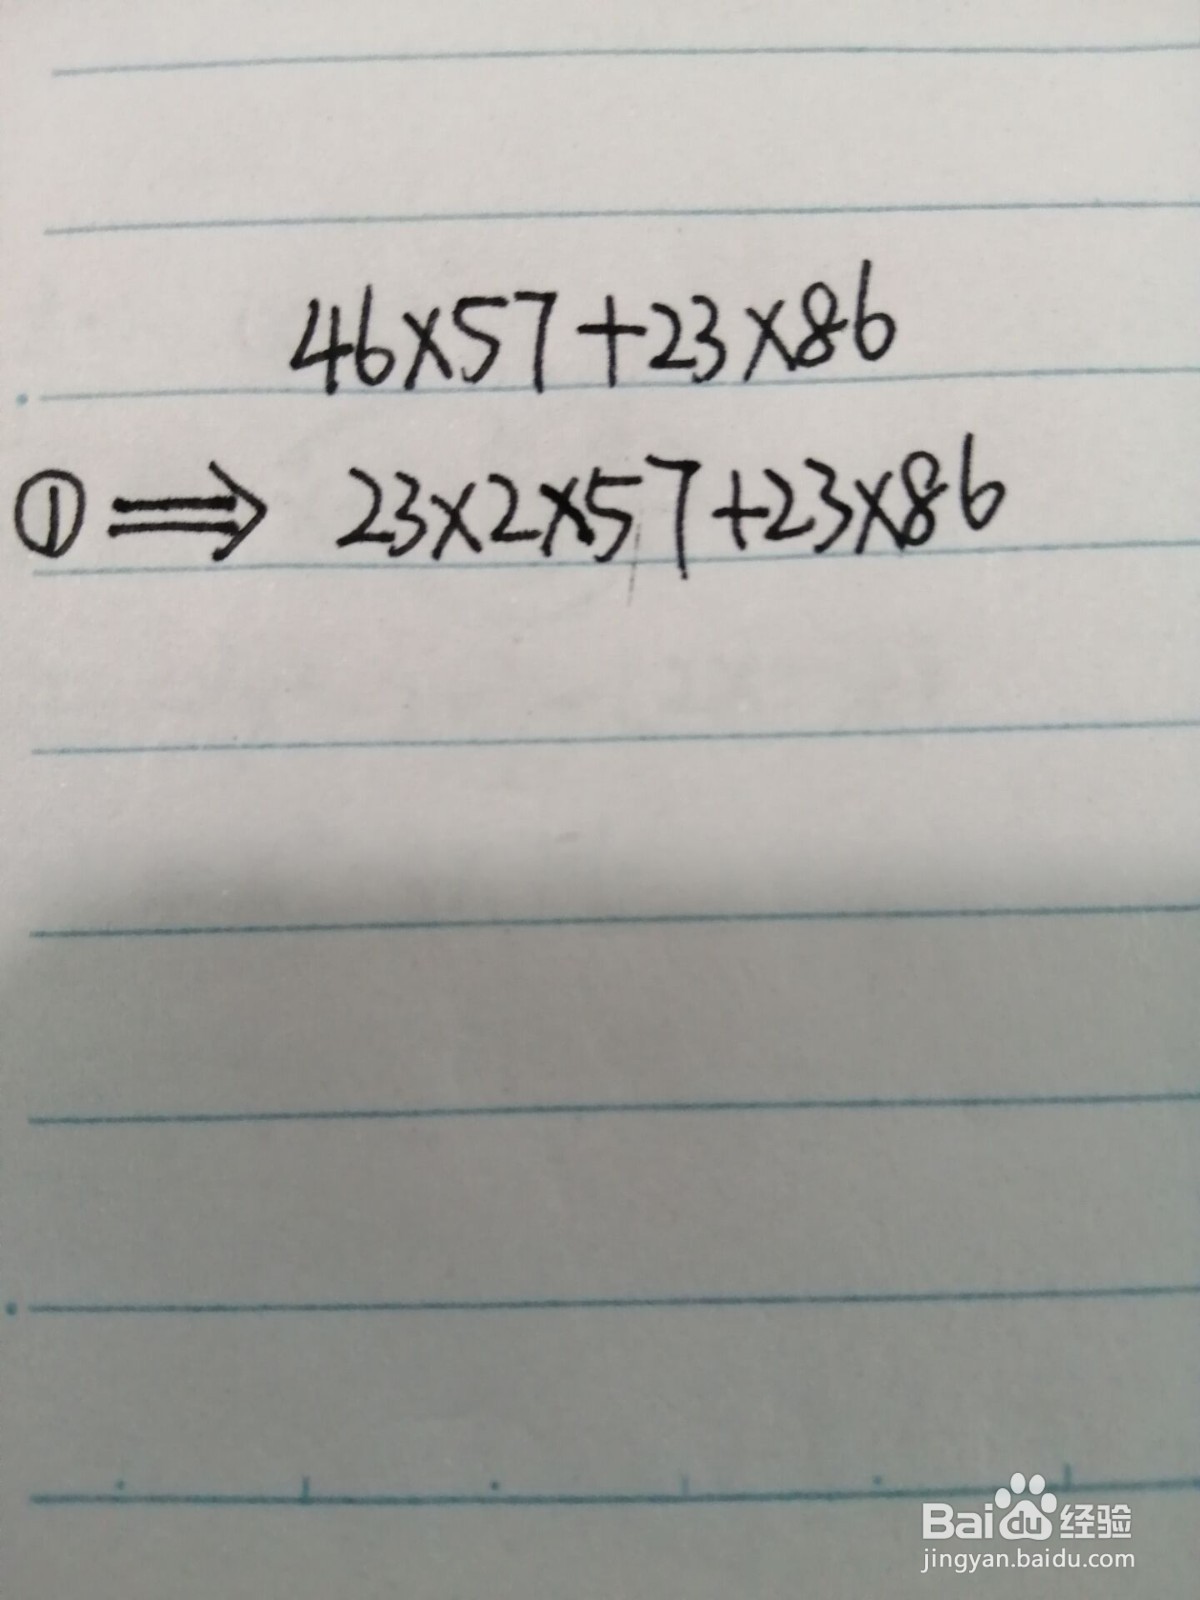 46×57+23×86
① ⟹ 23×2×57+23×86
Baidu经验
jingyan.baidu.com